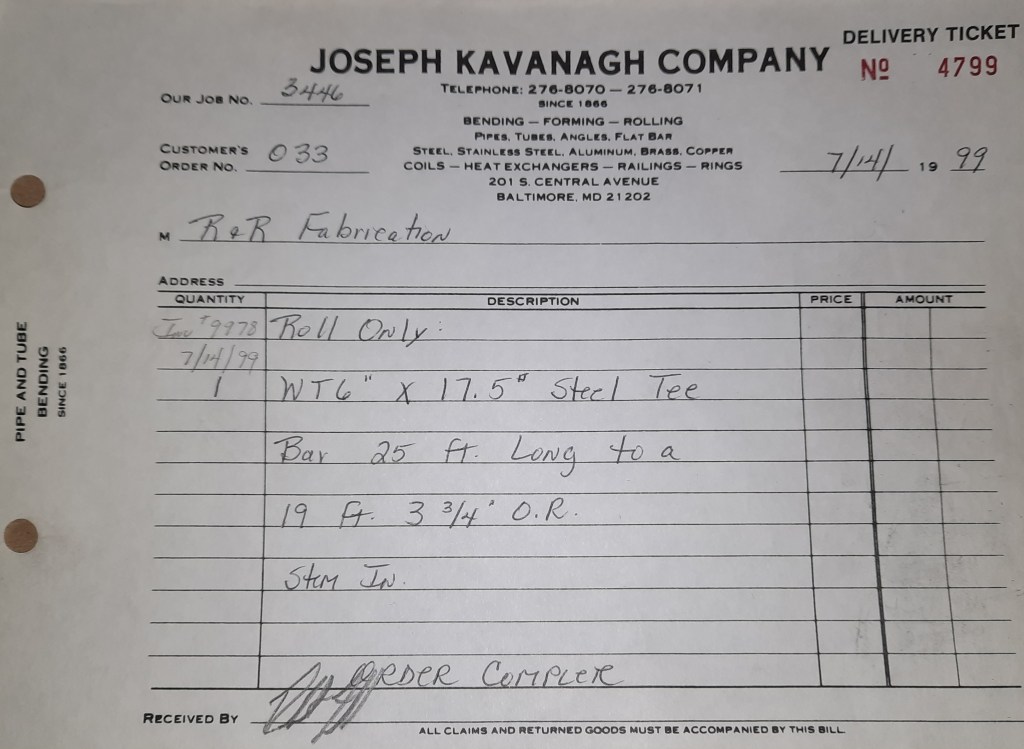 DELIVERY TICKET
JOSEPH KAVANAGH COMPANY
Nº 4799
OUR JOB NO. 3446
TELEPHONE: 276-8070 — 276-8071
SINCE 1866
BENDING — FORMING — ROLLING
PIPES, TUBES, ANGLES, FLAT BAR
CUSTOMER'S
ORDER NO. 033
STEEL, STAINLESS STEEL, ALUMINUM, BRASS, COPPER
COILS — HEAT EXCHANGERS — RAILINGS — RINGS
7/14/ 19 99
201 S. CENTRAL AVENUE
BALTIMORE, MD 21202
M R&R Fabrication
ADDRESS
QUANTITY DESCRIPTION PRICE AMOUNT
Inv #9978 Roll Only:
7/14/99
1 WT6" X 17.5# Steel Tee
Bar 25 ft. Long to a
19 ft. 3 3/4" O.R.
Stem In.
ORDER COMPLETE
RECEIVED BY
ALL CLAIMS AND RETURNED GOODS MUST BE ACCOMPANIED BY THIS BILL.
PIPE AND TUBE
BENDING
SINCE 1866